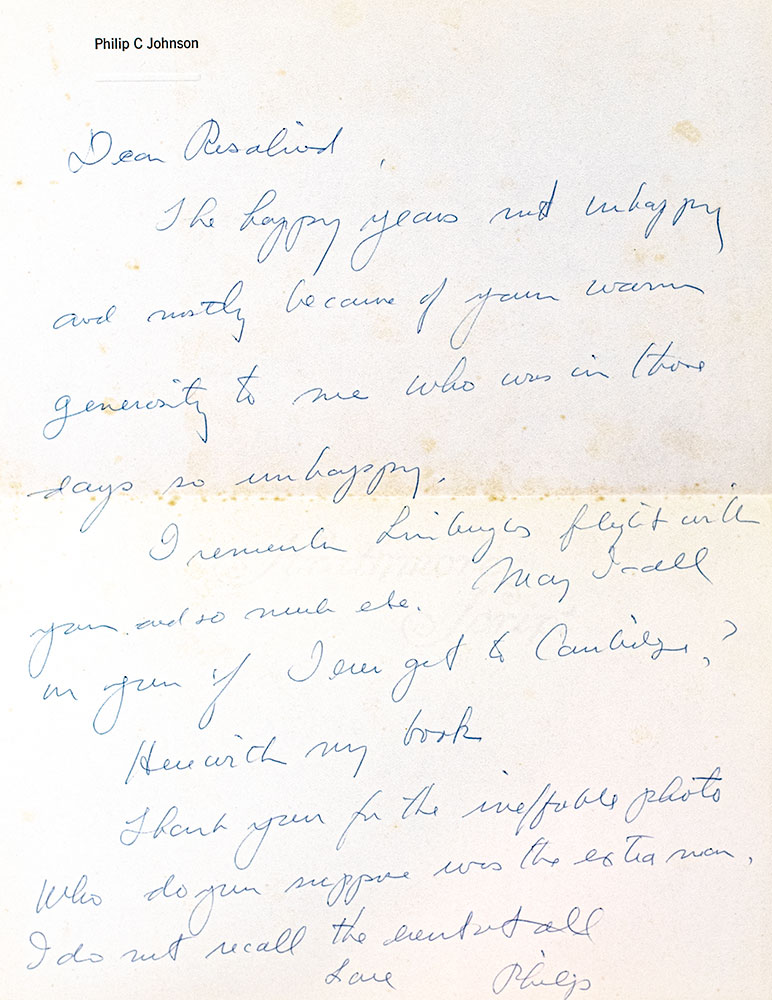 Philip C Johnson
Dear Rosalind,
The happy years not unhappy
and mostly because of your warm
generosity to me who was in those
days so unhappy.
I remember flight with
you and so much else. May I call
on you if I ever get to Cambridge?
Herewith my book
Thank you for the ineffable photo
Who do you suppose was the extra man.
I do not recall the event at all
Love Philip